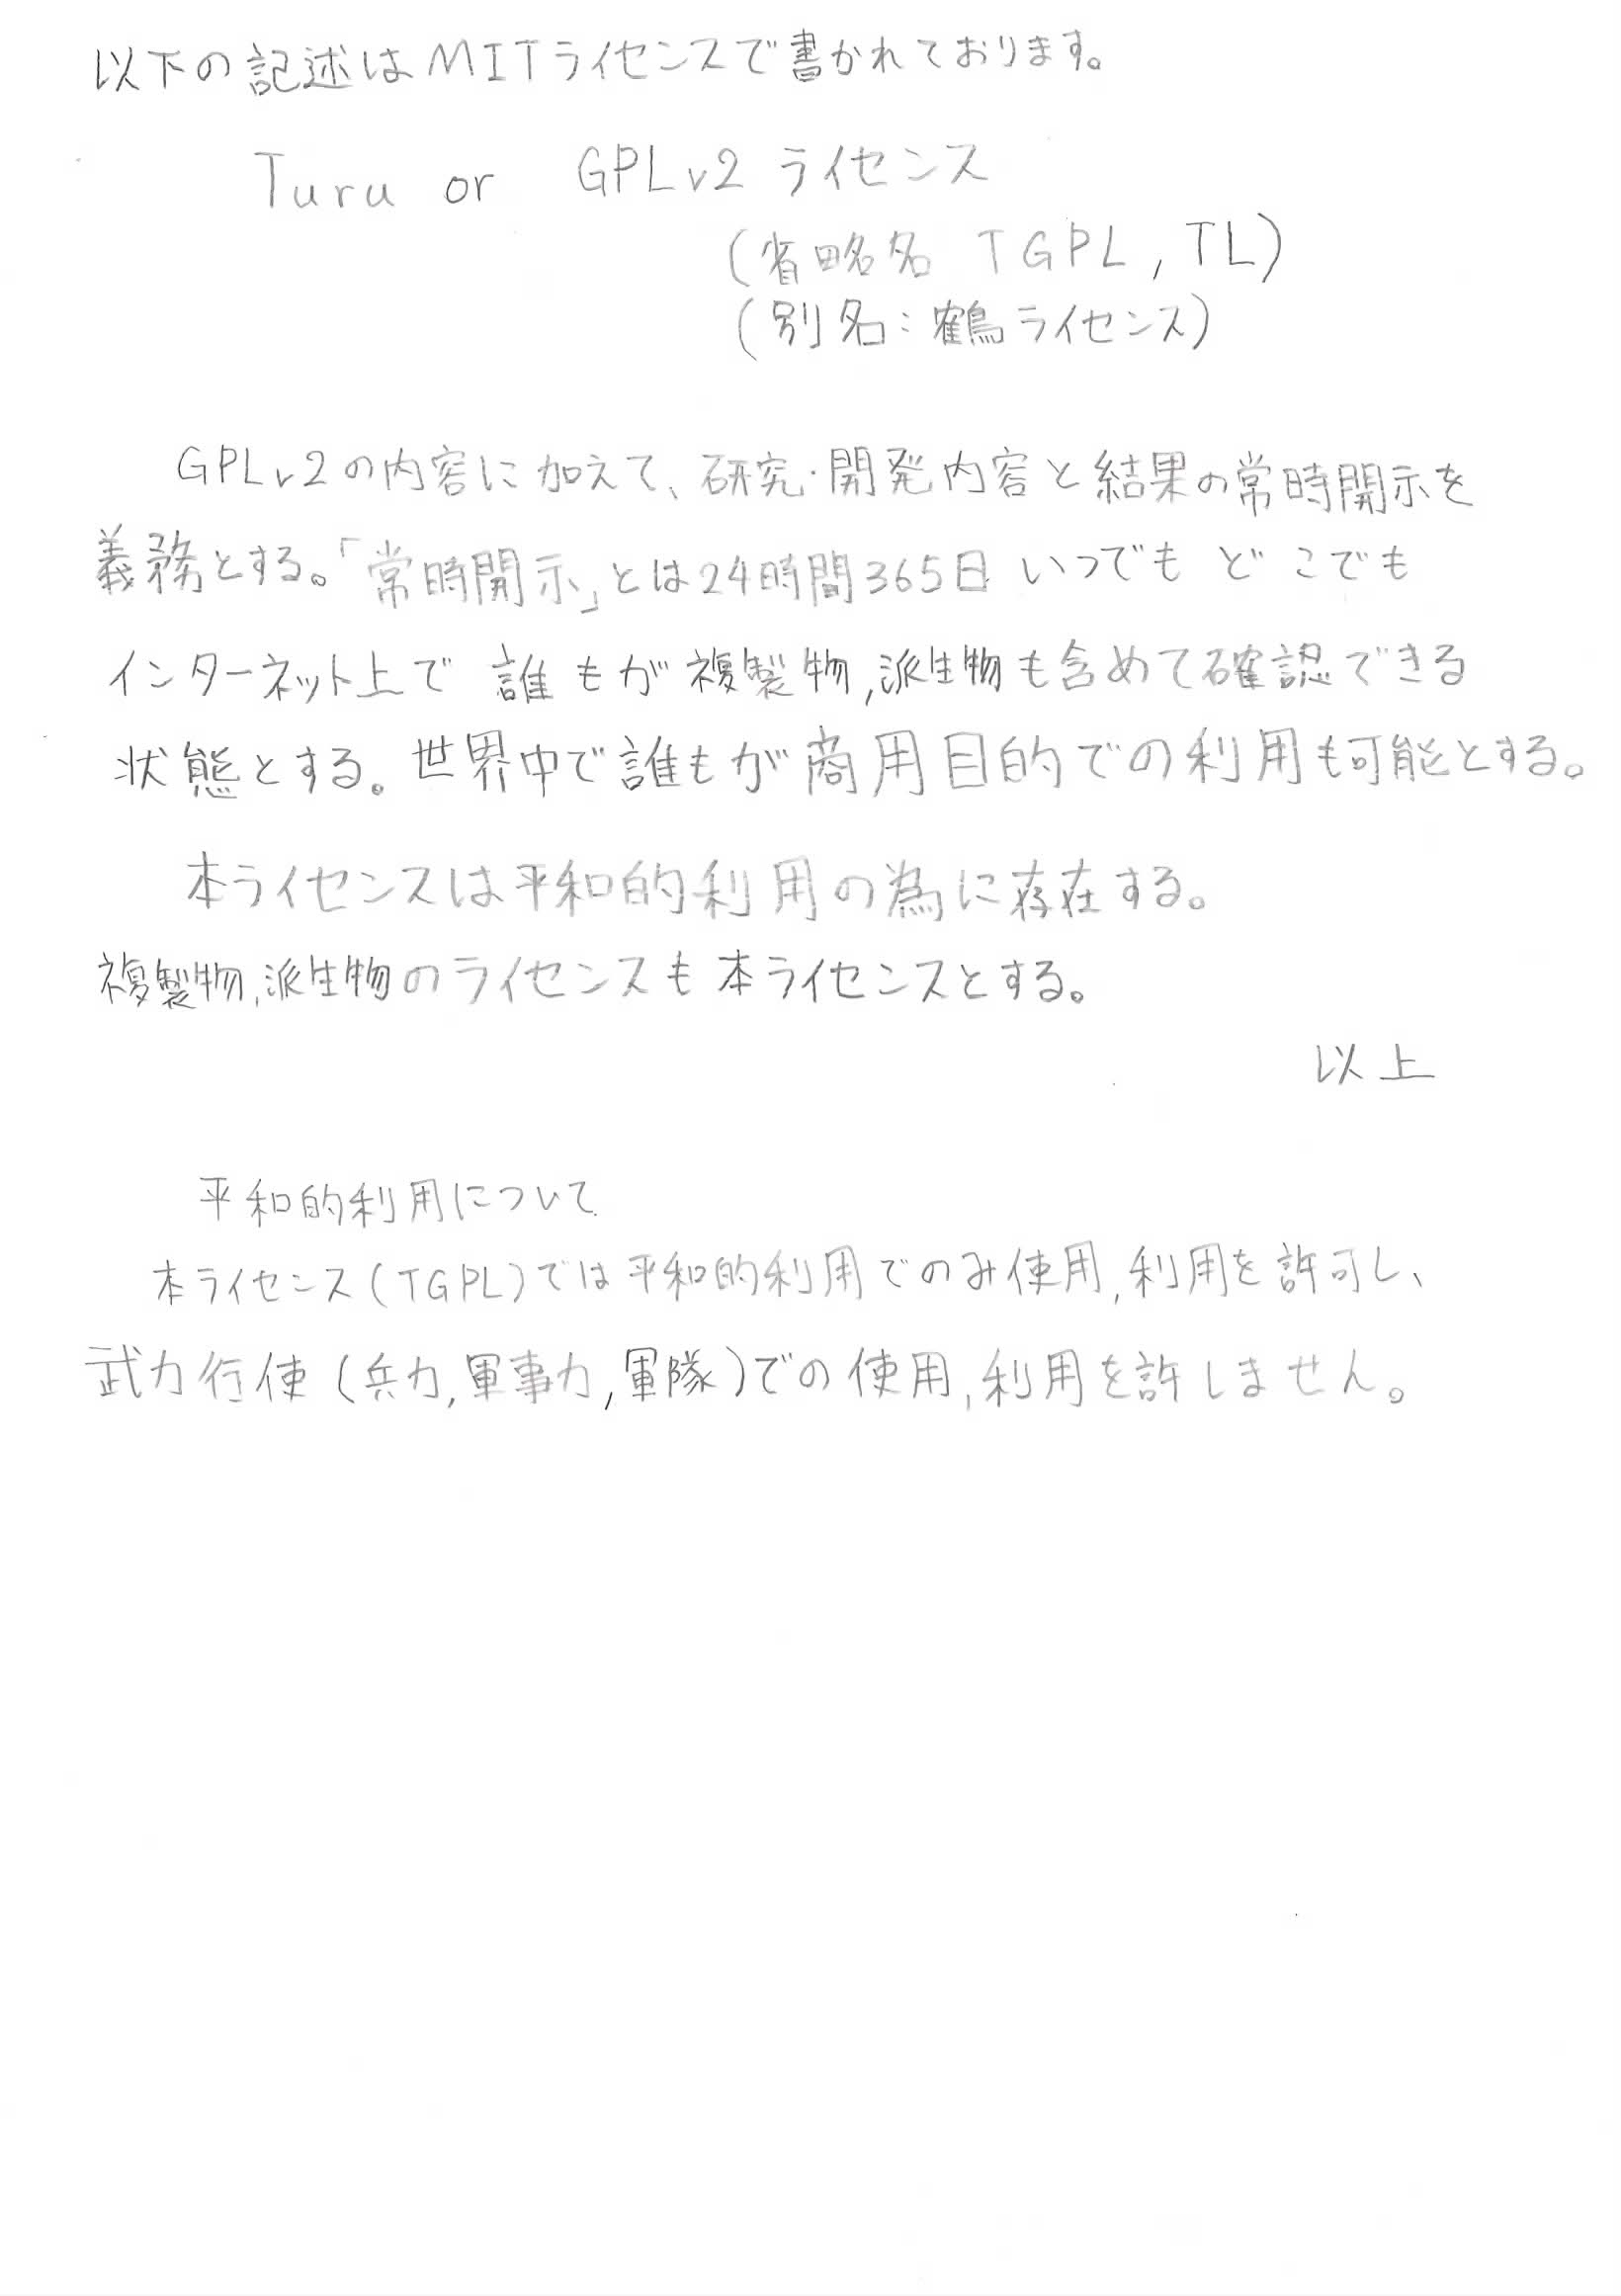 以下の記述はMITライセンスで書かれております。
Turu or GPLv2 ライセンス
(省略名 TGPL, TL)
(別名:鶴ライセンス)
GPLv2の内容に加えて、研究・開発内容と結果の常時開示を
義務とする。「常時開示」とは24時間365日 いつでも どこでも
インターネット上で 誰もが複製物,派生物も含めて確認できる
状態とする。世界中で誰もが商用目的での利用も可能とする。
本ライセンスは平和的利用の為に存在する。
複製物,派生物のライセンスも本ライセンスとする。
以上
平和的利用について
本ライセンス(TGPL)では平和的利用でのみ使用,利用を許可し、
武力行使(兵力,軍事力,軍隊)での使用,利用を許しません。